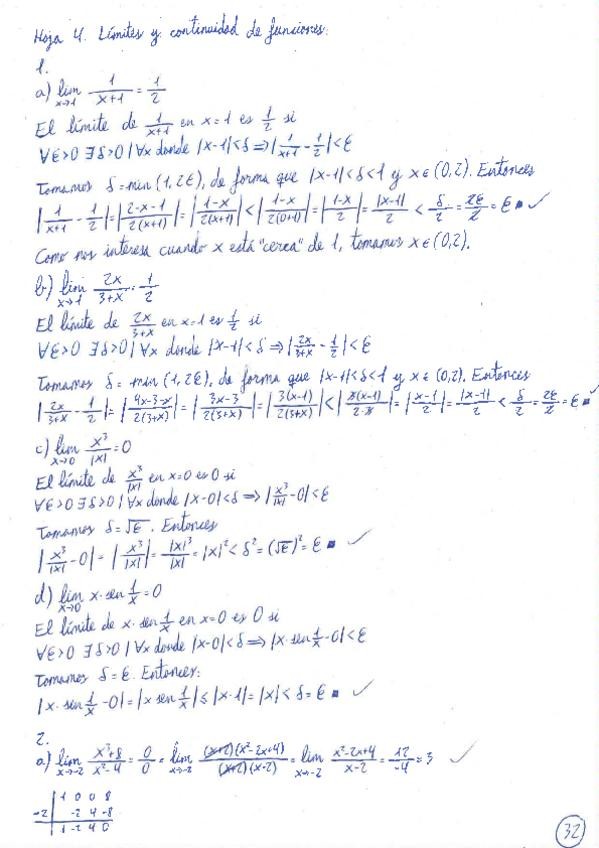 Hoja 4. Límites y continuidad de funciones.
1.
a) lim x→1 1/(x+1) = 1/2
El límite de 1/(x+1) en x=1 es 1/2 si
∀ε>0 ∃δ>0 | ∀x donde |x-1|<δ ⇒ |1/(x+1) - 1/2|<ε
Tomamos δ=min(1,2ε), de forma que |x-1|<δ<1 y x∈(0,2). Entonces
|1/(x+1) - 1/2| = |(2-x-1)/(2(x+1))| = |(1-x)/(2(x+1))| < |(1-x)/(2(0+1))| = |(1-x)/2| = |x-1|/2 < δ/2 = 2ε/2 = ε ■ ✓
Como nos interesa cuando x está "cerca" de 1, tomamos x∈(0,2).
b) lim x→1 2x/(3+x) = 1/2
El límite de 2x/(3+x) en x=1 es 1/2 si
∀ε>0 ∃δ>0 | ∀x donde |x-1|<δ ⇒ |2x/(3+x) - 1/2|<ε
Tomamos δ=min(1,2ε), de forma que |x-1|<δ<1 y x∈(0,2). Entonces
|2x/(3+x) - 1/2| = |(4x-3-x)/(2(3+x))| = |(3x-3)/(2(3+x))| = |3(x-1)/(2(3+x))| < |3(x-1)/(2·3)| = |(x-1)/2| = |x-1|/2 < δ/2 = 2ε/2 = ε ■ ✓
c) lim x→0 x³/|x| = 0
El límite de x³/|x| en x=0 es 0 si
∀ε>0 ∃δ>0 | ∀x donde |x-0|<δ ⇒ |x³/|x| - 0|<ε
Tomamos δ=√ε. Entonces
|x³/|x| - 0| = |x³/|x|| = |x|³/|x| = |x|² < δ² = (√ε)² = ε ■ ✓
d) lim x→0 x·sen 1/x = 0
El límite de x·sen 1/x en x=0 es 0 si
∀ε>0 ∃δ>0 | ∀x donde |x-0|<δ ⇒ |x·sen 1/x - 0|<ε
Tomamos δ=ε. Entonces:
|x·sen 1/x - 0| = |x sen 1/x| ≤ |x·1| = |x| < δ = ε ■ ✓
2.
a) lim x→-2 (x³+8)/(x²-4) = 0/0 = lim x→-2 (x+2)(x²-2x+4)/((x+2)(x-2)) = lim x→-2 (x²-2x+4)/(x-2) = 12/-4 = -3 ✓
1 0 0 8
-2 | -2 4 -8
1 -2 4 0
32